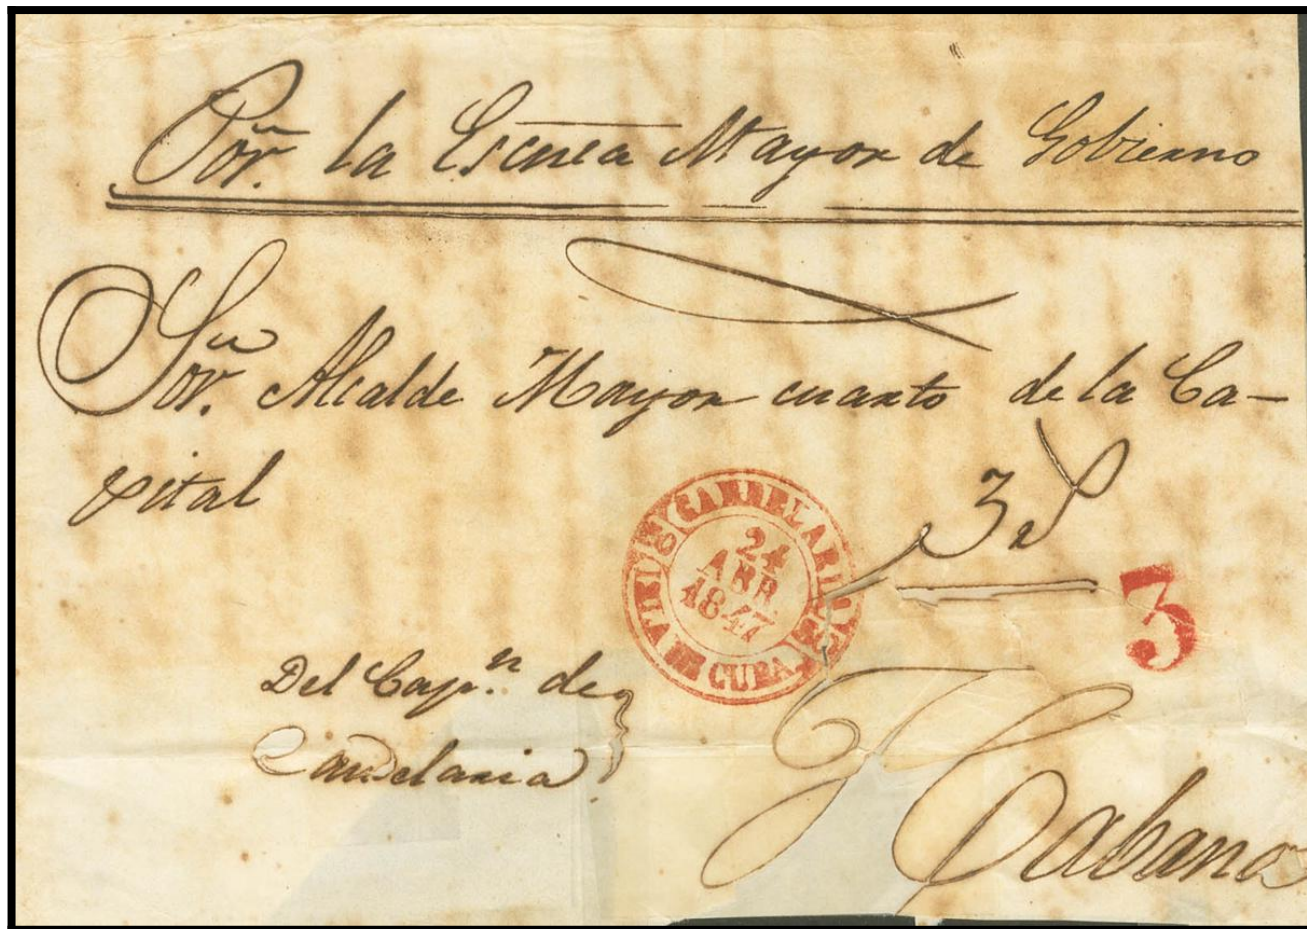 Por. la Escnia Mayor de Gobierno
Sor. Alcalde Mayor cuarto de la Ca-
pital
3
CANDELARIA
24
ABR
1847
ISLA DE CUBA
3
Del Capn. de
Candelaria
Habana